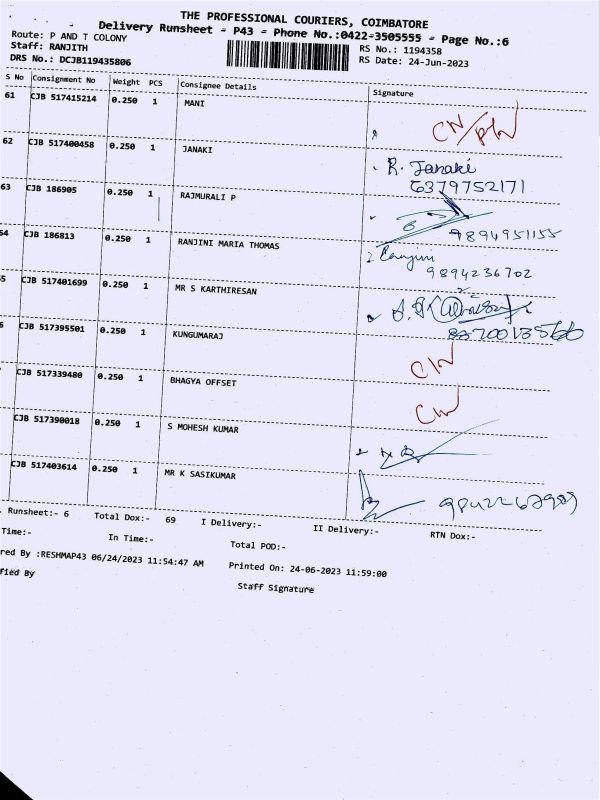 THE PROFESSIONAL COURIERS, COIMBATORE
Delivery Runsheet - P43 - Phone No.:0422-3505555 - Page No.:6
Route: P AND T COLONY
Staff: RANJITH
DRS No.: DCJB119435806
RS No.: 1194358
RS Date: 24-Jun-2023
S No Consignment No Weight PCS Consignee Details Signature
61 CJB 517415214 0.250 1 MANI
62 CJB 517400458 0.250 1 JANAKI R. Janaki
6379752171
63 CJB 186905 0.250 1 RAJMURALI P
9894951155
64 CJB 186813 0.250 1 RANJINI MARIA THOMAS
9894236702
5 CJB 517401699 0.250 1 MR S KARTHIRESAN
CJB 517395501 0.250 1 KUNGUMARAJ
CJB 517339480 0.250 1 BHAGYA OFFSET
CJB 517390018 0.250 1 S MOHESH KUMAR
CJB 517403614 0.250 1 MR K SASIKUMAR
. Runsheet:- 6 Total Dox:- 69 I Delivery:- II Delivery:- RTN Dox:-
Time:- In Time:- Total POD:-
red By :RESHMAP43 06/24/2023 11:54:47 AM Printed On: 24-06-2023 11:59:00
fied By Staff Signature